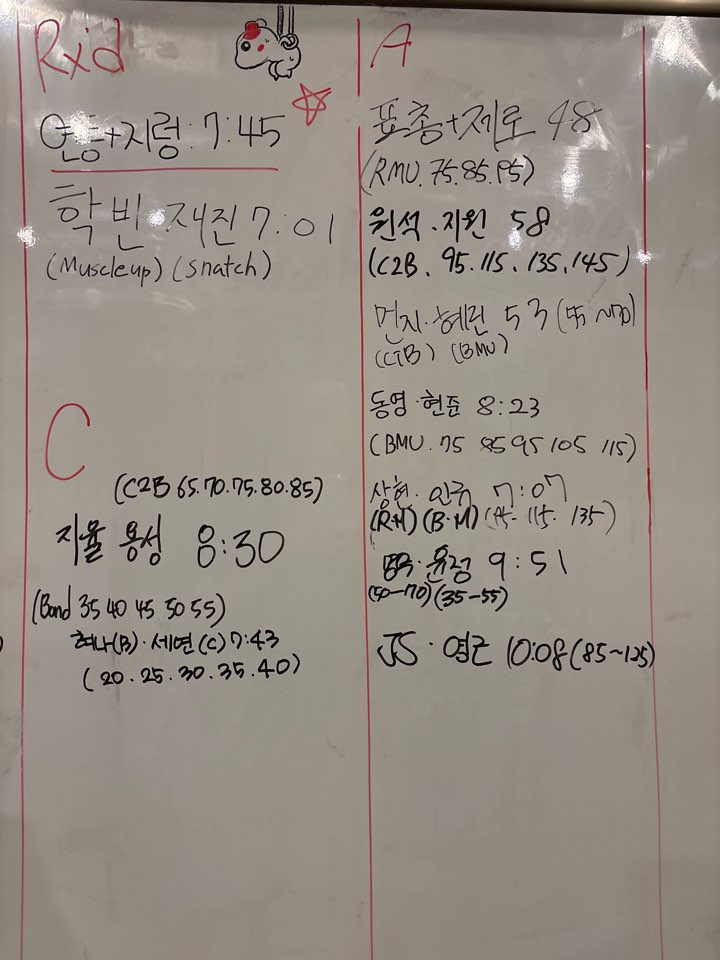 Rxid
연흥+지렁: 7:45
학빈 재진 7:01
(Muscleup) (snatch)
C
(C2B 65.70.75.80.85)
지율 용성 8:30
(Band 35 40 45 50 55)
혀나(B)·세연(C) 7:43
(20.25.30.35.40)
A
표총+제로 48
(RMU. 75.85.95)
원석·지원 58
(C2B. 95.115.135.145)
먼지·혜린 53 (55~70)
(CTB) (BMU)
동영·현준 8:23
(BMU. 75 85 95 105 115)
상현·인규 7:07
(R·M) (B·M) (95. 115. 135)
윤정 9:51
(50-70) (35-55)
JS·영근 10:08 (85~125)